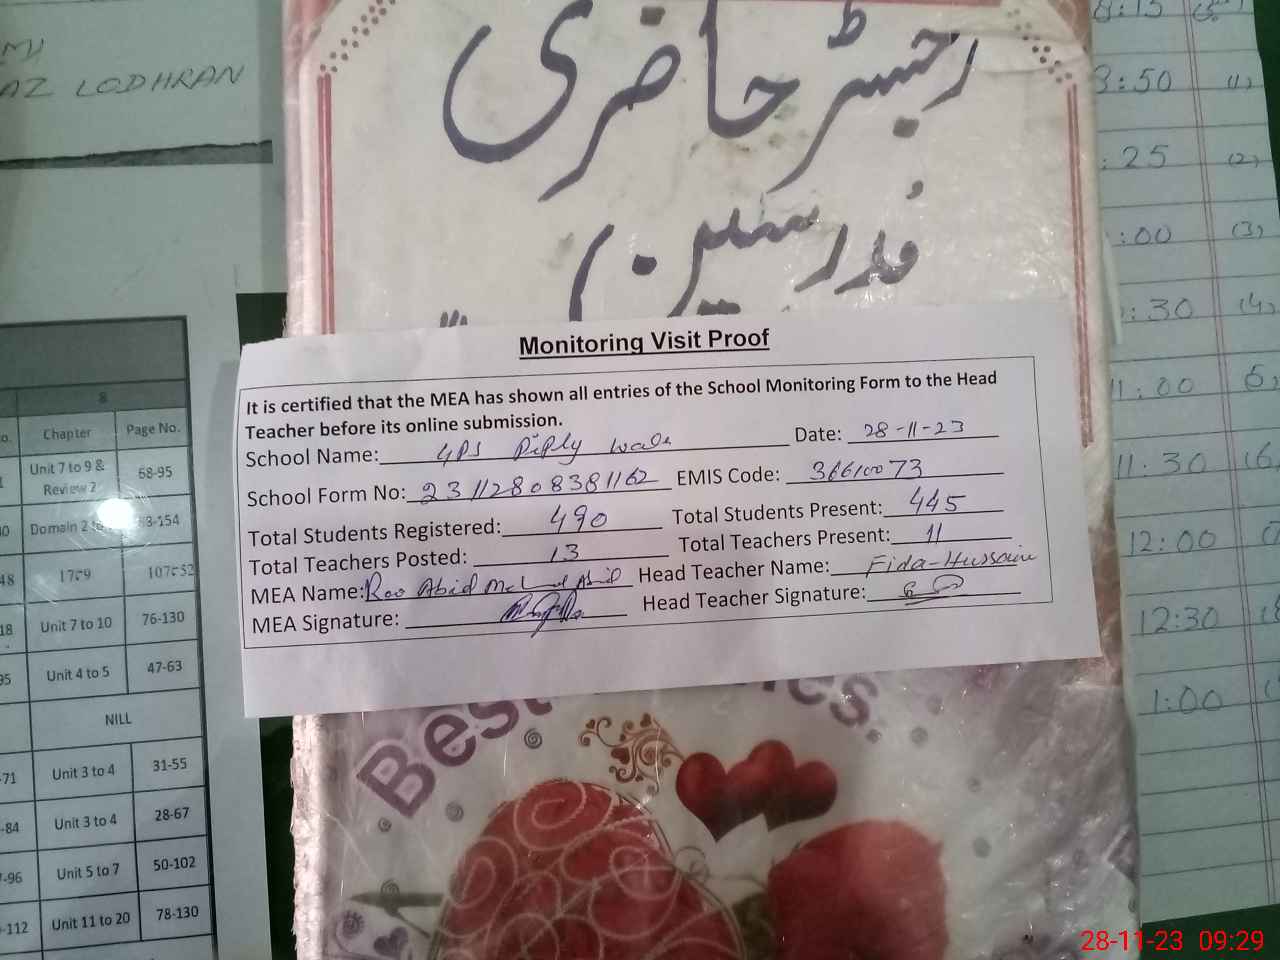 AZ LODHRAN
رجسٹر حاضری
مدرسین
8
Chapter Page No.
Unit 7 to 9 & Review 2 68-95
Domain 2 to
Unit 7 to 10 76-130
Unit 4 to 5 47-63
NILL
-71 Unit 3 to 4 31-55
-84 Unit 3 to 4 28-67
-96 Unit 5 to 7 50-102
-112 Unit 11 to 20 78-130
Monitoring Visit Proof
It is certified that the MEA has shown all entries of the School Monitoring Form to the Head
Teacher before its online submission.
School Name: GPS Piply wala Date: 28-11-23
School Form No: 23112808381162 EMIS Code: 36610073
Total Students Registered: 490 Total Students Present: 445
Total Teachers Posted: 13 Total Teachers Present: 11
MEA Name: Rao Abid Head Teacher Name: Fida-Hussain
MEA Signature: Head Teacher Signature:
8:15
8:50 (1)
:25 (2)
:00 (3)
:30 (4)
11:00
11:30
12:00
12:30
1:00
Best
28-11-23 09:29